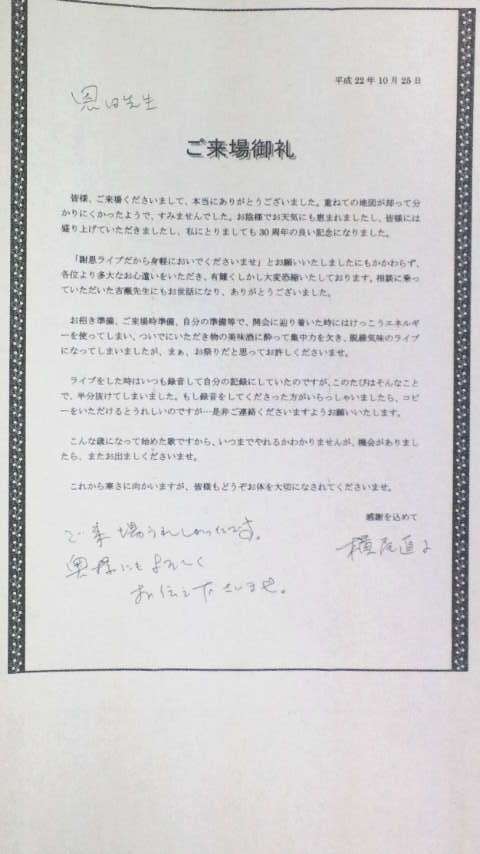 平成22年10月25日
恩田先生
ご来場御礼
皆様、ご来場くださいまして、本当にありがとうございました。重ねての地図が却って分
かりにくかったようで、すみませんでした。お陰様でお天気にも恵まれましたし、皆様には
盛り上げていただきましたし、私にとりましても30周年の良い記念になりました。
「謝恩ライブだから身軽においでくださいませ」とお願いいたしましたにもかかわらず、
各位より多大なお心遣いをいただき、有難くしかし大変恐縮いたしております。相談に乗っ
ていただいた古瀬先生にもお世話になり、ありがとうございました。
お招き準備、ご来場時準備、自分の準備等で、開会に辿り着いた時にはけっこうエネルギ
ーを使ってしまい、ついでにいただき物の美味酒に酔って集中力を欠き、脱線気味のライブ
になってしまいましたが、まぁ、お祭りだと思ってお許しくださいませ。
ライブをした時はいつも録音して自分の記録にしていたのですが、このたびはそんなこと
で、半分抜けてしまいました。もし録音をしてくださった方がいらっしゃいましたら、コピ
ーをいただけるとうれしいのですが…是非ご連絡くださいますようお願いいたします。
こんな歳になって始めた歌ですから、いつまでやれるかわかりませんが、機会がありまし
たら、またお出ましくださいませ。
これから寒さに向かいますが、皆様もどうぞお体を大切になされてくださいませ。
感謝を込めて
ご来場うれしかったです。
奥様にもよろしく
お伝え下さいませ。